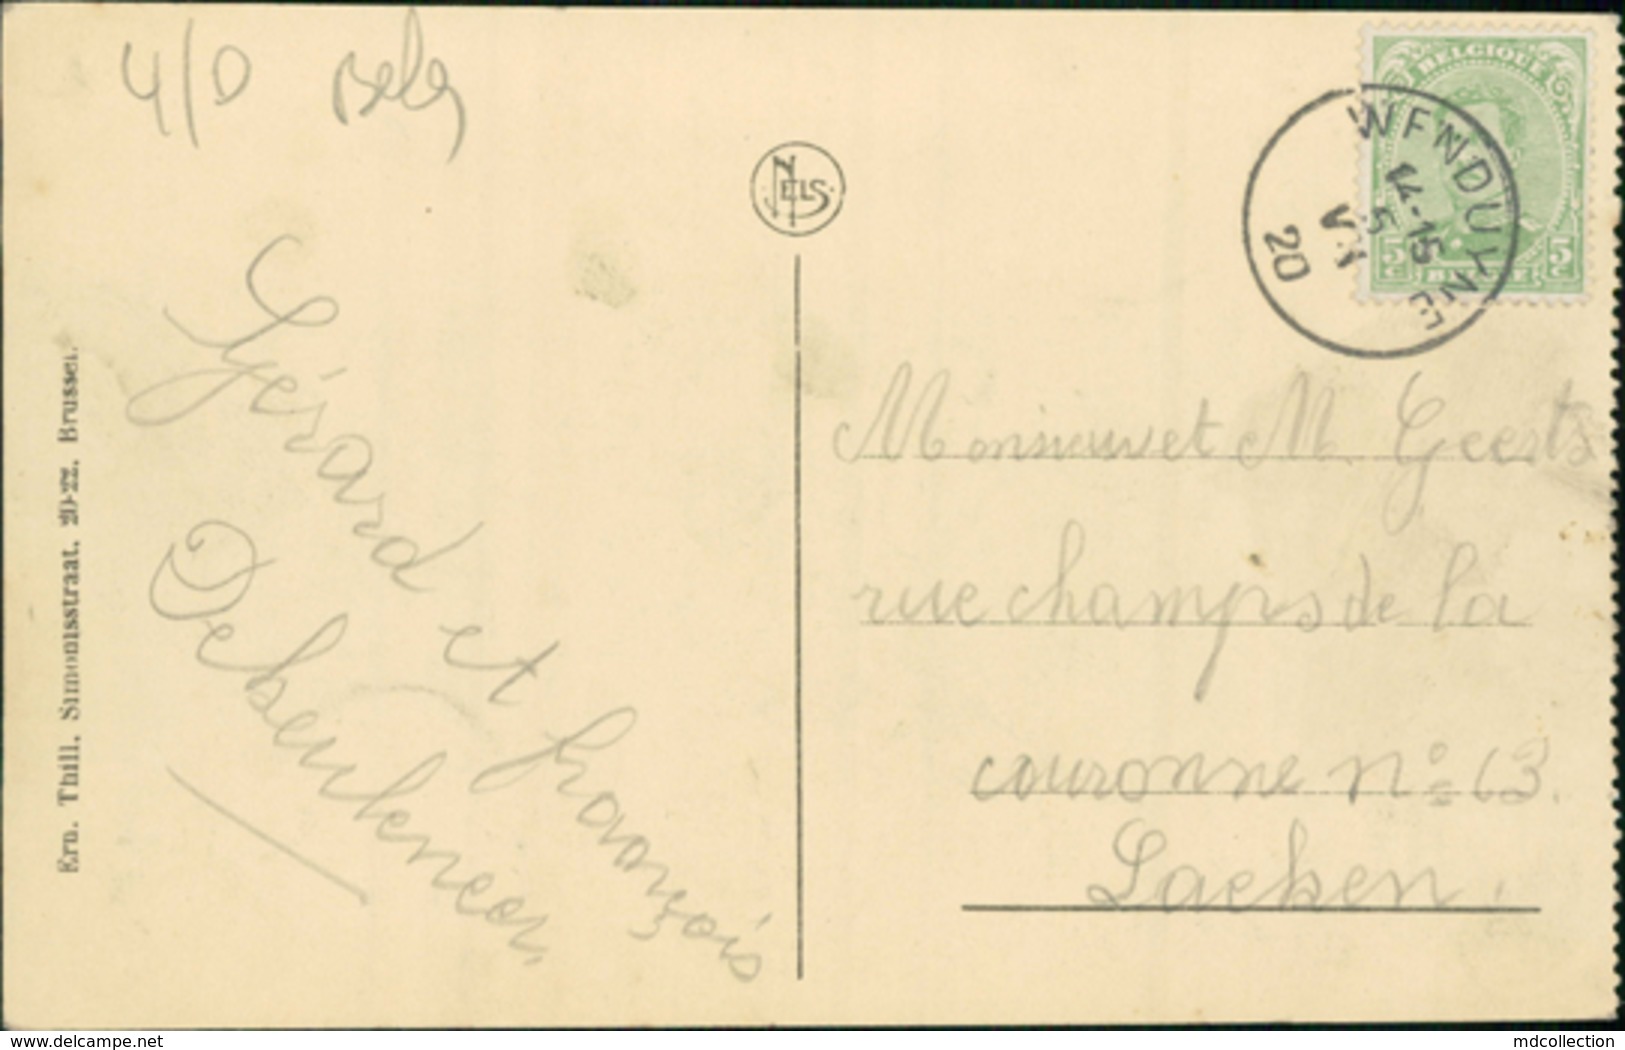 4/0
BELGIQUE
5 c
5 c
WENDUYNE
14-15
5
VII
20
NELS
Gérard et François
Debeukeneer
Monsieur et M Geerts
rue champs de la
couronne n° 63.
Laeken.
Ern. Thill. Simonisstraat. 20-22. Brussel.
www.delcampe.net
mdcollection